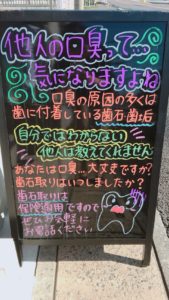 他人の口臭って…
気になりますよね
口臭の原因の多くは
歯に付着している歯石・歯垢
自分ではわからない
他人は教えてくれません
あなたは口臭…大丈夫ですか?
歯石取りはいつしましたか?
歯石取りは
保険適用ですので
ぜひお気軽に
お電話ください